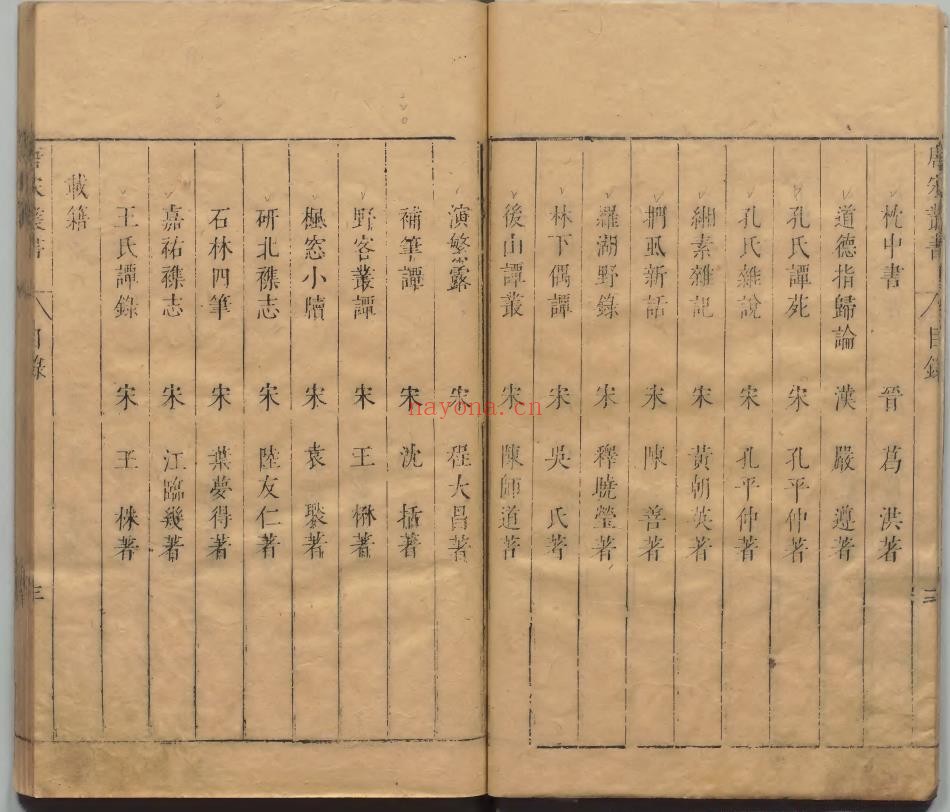 唐宋叢書 目錄 三
枕中書 晉 葛洪著
道德指歸論 漢 嚴遵著
孔氏譚苑 宋 孔平仲著
孔氏雜說 宋 孔平仲著
緗素雜記 宋 黃朝英著
捫虱新話 宋 陳善著
羅湖野錄 宋 釋曉瑩著
林下偶譚 宋 吳氏著
後山譚叢 宋 陳師道著
演繁露 宋 程大昌著
補筆譚 宋 沈括著
野客叢譚 宋 王楙著
楓窓小牘 宋 袁褧著
研北襍志 宋 陸友仁著
石林四筆 宋 葉夢得著
嘉祐襍志 宋 江臨幾著
王氏譚錄 宋 王洙著
載籍
唐宋叢書 目錄 三
hayona.cn